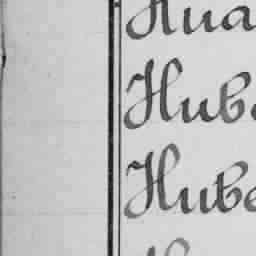 Hua
Hube
Hube